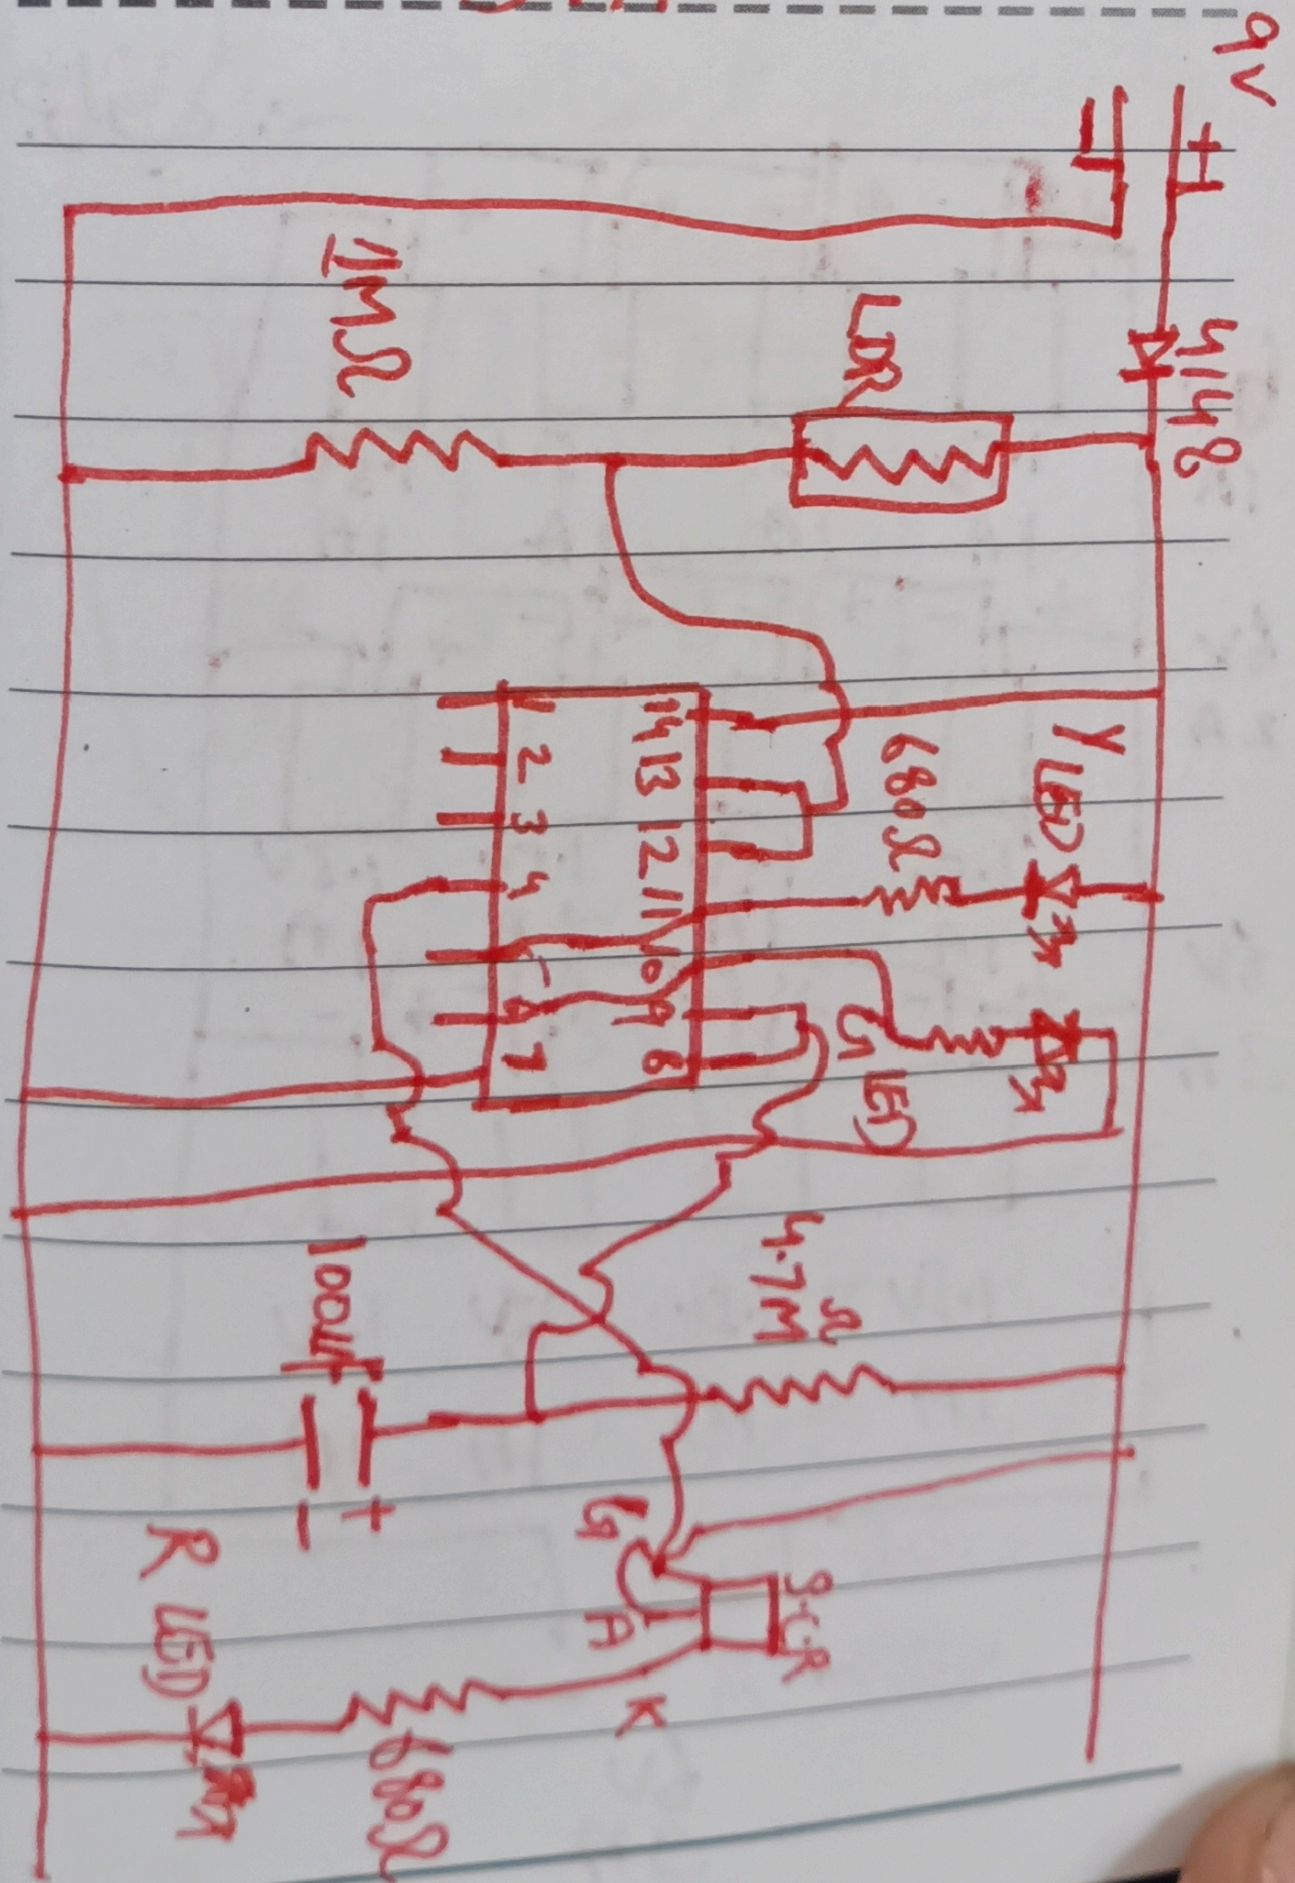 9V
+
-
4148
LDR
1MΩ
Y LED
680Ω
14 13 12 11 10 9 8
1 2 3 4 5 6 7
G LED
4.7MΩ
100µF
+
-
S.C.R
G
A
K
R LED
680Ω